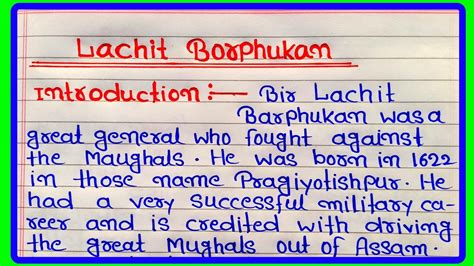 Lachit Borphukan
Introduction :— Bir Lachit
Barphukan was a
great general who fought against
the Maughals. He was born in 1622
in those name Pragiyotishpur. He
had a very successful military ca-
reer and is credited with driving
the great Mughals out of Assam.